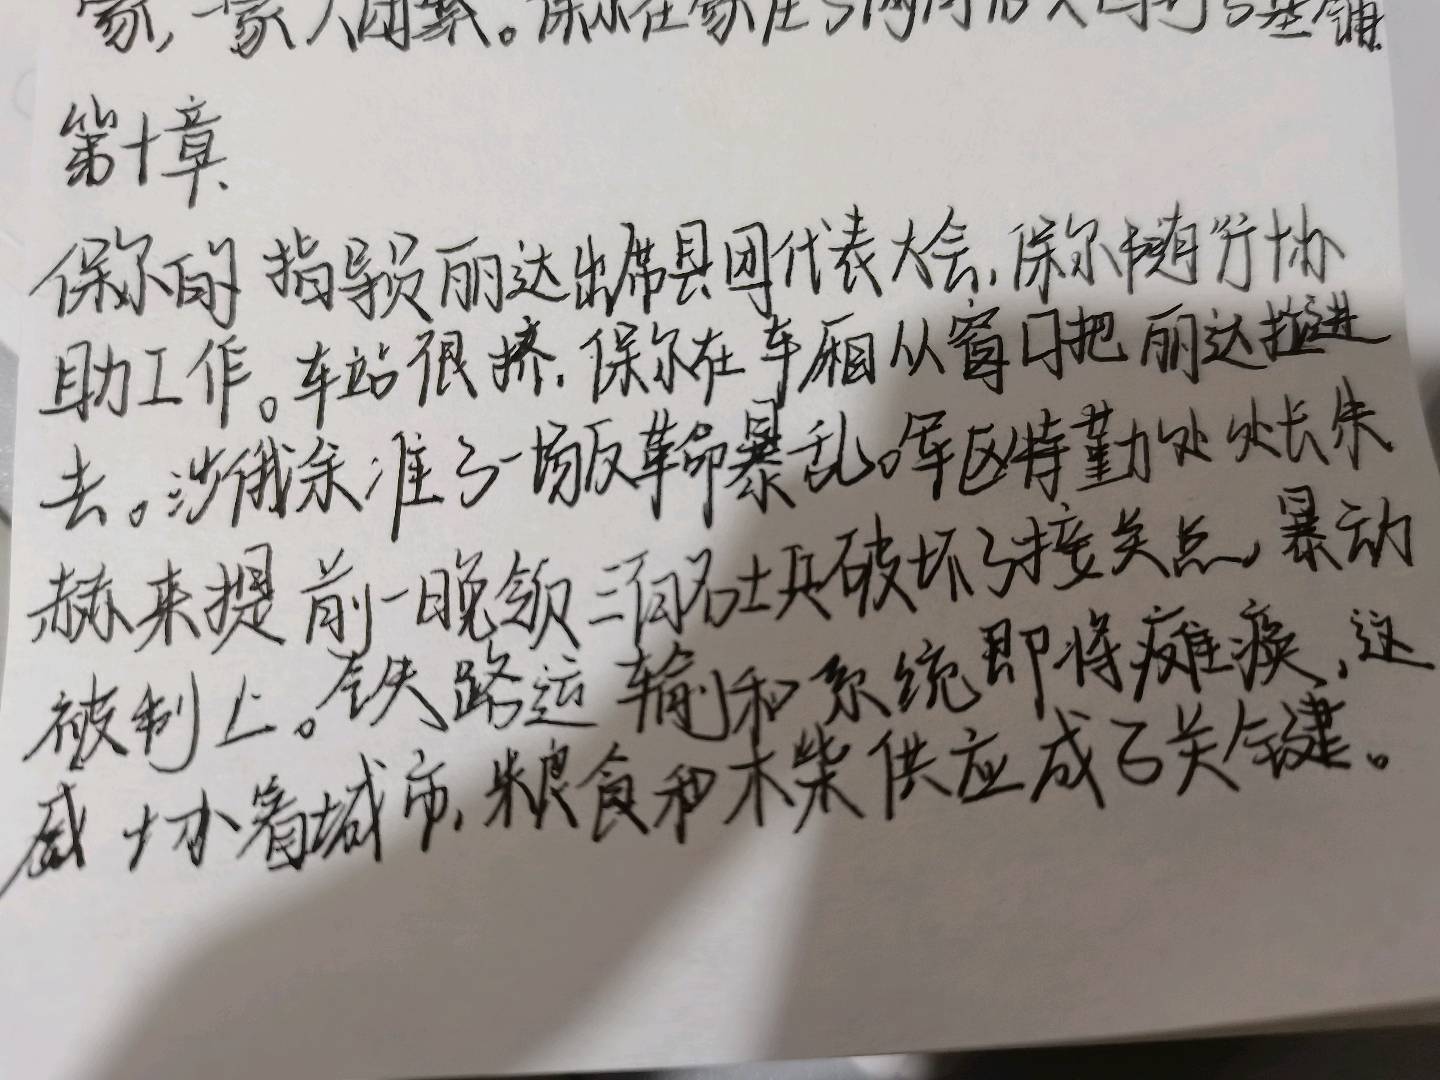 家,一家人团聚。保尔在家住了两周后又回到了基辅
第十章
保尔的指导员丽达出席县团代表大会,保尔随行协
助工作。车站很挤,保尔在车厢从窗口把丽达拉进
去。沙俄余准了一场反革命暴乱。军区特勤处处长朱
赫来提前一晚领三百名士兵破坏了接关点,暴动
被制止。铁路运输和系统即将瘫痪,这
威胁着城市,粮食和木柴供应成了关键。